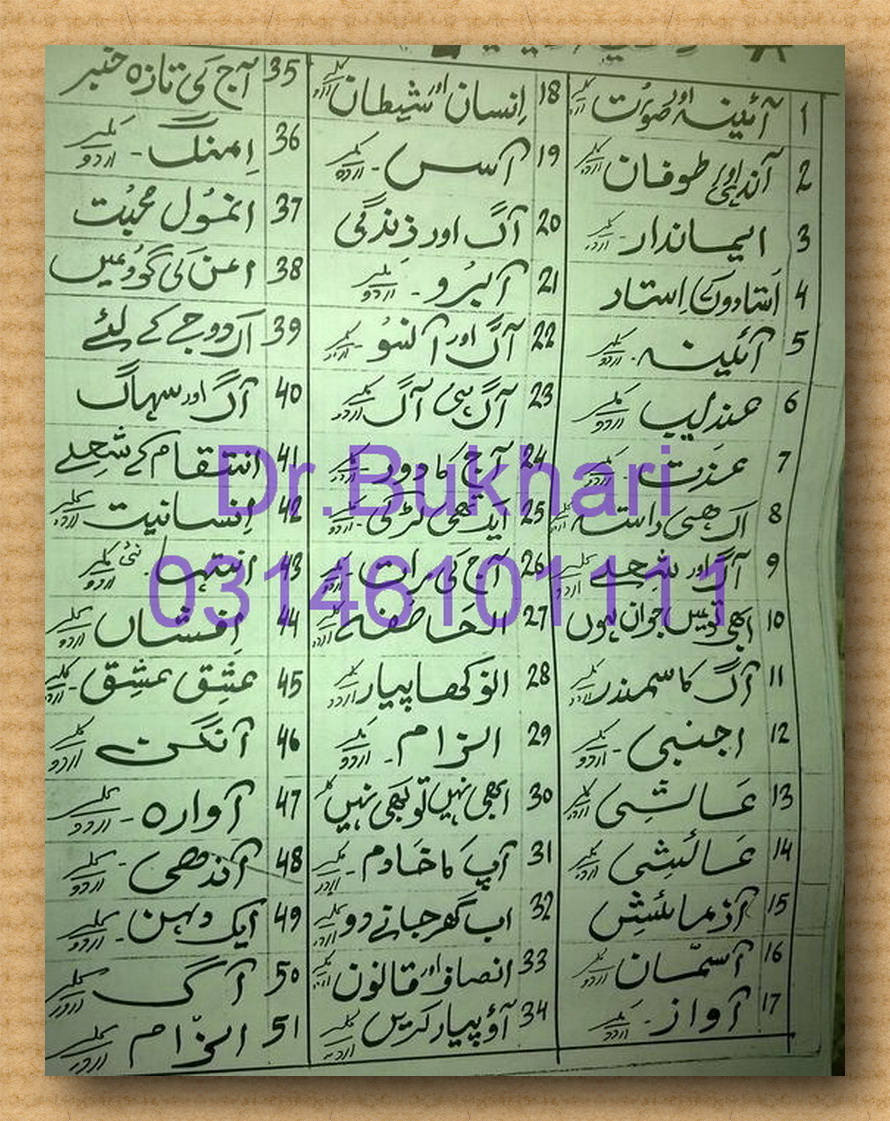 1 آئینہ اور صورت کلر اردو
2 آندھی اور طوفان کلر اردو
3 ایماندار - کلر اردو
4 استادوں کے استاد
5 آئینہ - کلر اردو
6 عندلیب کلر اردو
7 عزت - کلر اردو
8 اک ہی راستہ کلر اردو
9 آگ اور شعلے کلر اردو
10 ابھی تو میں جوان ہوں
11 آگ کا سمندر کلر اردو
12 اجنبی - کلر اردو
13 عاشقی کلر اردو
14 عائشہ کلر اردو
15 آزمائش
16 آسمان کلر اردو
17 آواز - کلر اردو
18 انسان اور شیطان کلر اردو
19 آس - کلر اردو
20 آگ اور زندگی
21 آبرو - کلر اردو
22 آگ اور آنسو کلر اردو
23 آگ ہی آگ کلر اردو
24 آج کا دور - کلر اردو
25 ایک تھی لڑکی - کلر اردو
26 آج کی رات کلر اردو
27 کلر اردو
28 انوکھا پیار کلر اردو
29 الزام - کلر اردو
30 ابھی نہیں تو کبھی نہیں کلر
31 آپ کا خادم - کلر اردو
32 اب گھر جانے دو کلر اردو
33 انصاف اور قانون کلر اردو
34 آؤ پیار کریں کلر اردو
35 آج کی تازہ خبر
36 امنگ - کلر اردو
37 انمول محبت
38 امن کی گود میں
39 اک دوجے کے لئے
40 آگ اور سہاگ
41 انتقام کے شعلے
42 انسانیت - کلر اردو
43 انتہا نئی کلر اردو
44 افشاں کلر اردو
45 عشق عشق - کلر اردو
46 آنگن - کلر اردو
47 آوارہ - کلر اردو
48 آندھی - کلر اردو
49 ایک دلہن - کلر اردو
50 آگ کلر اردو
51 الزام کلر اردو
Dr.Bukhari
03146101111